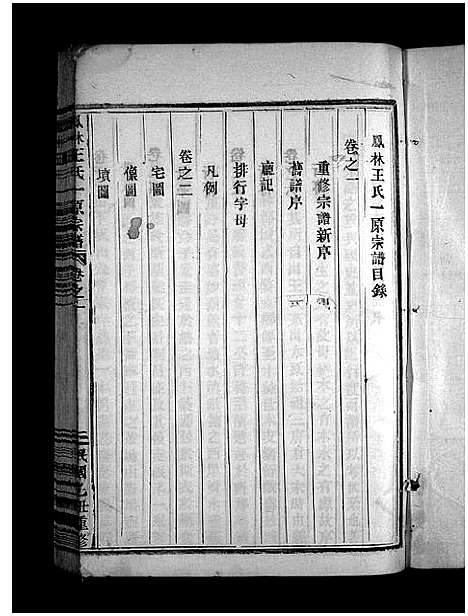 鳳林王氏一原宗譜目錄
卷之一
重修宗譜新序
舊譜序
廟記
排行字母
凡例
卷之二
宅圖
像圖
墳圖
鳳林王氏一原宗譜
卷之一
民國乙丑重修